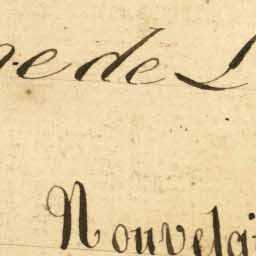 e de L
Nouvelai